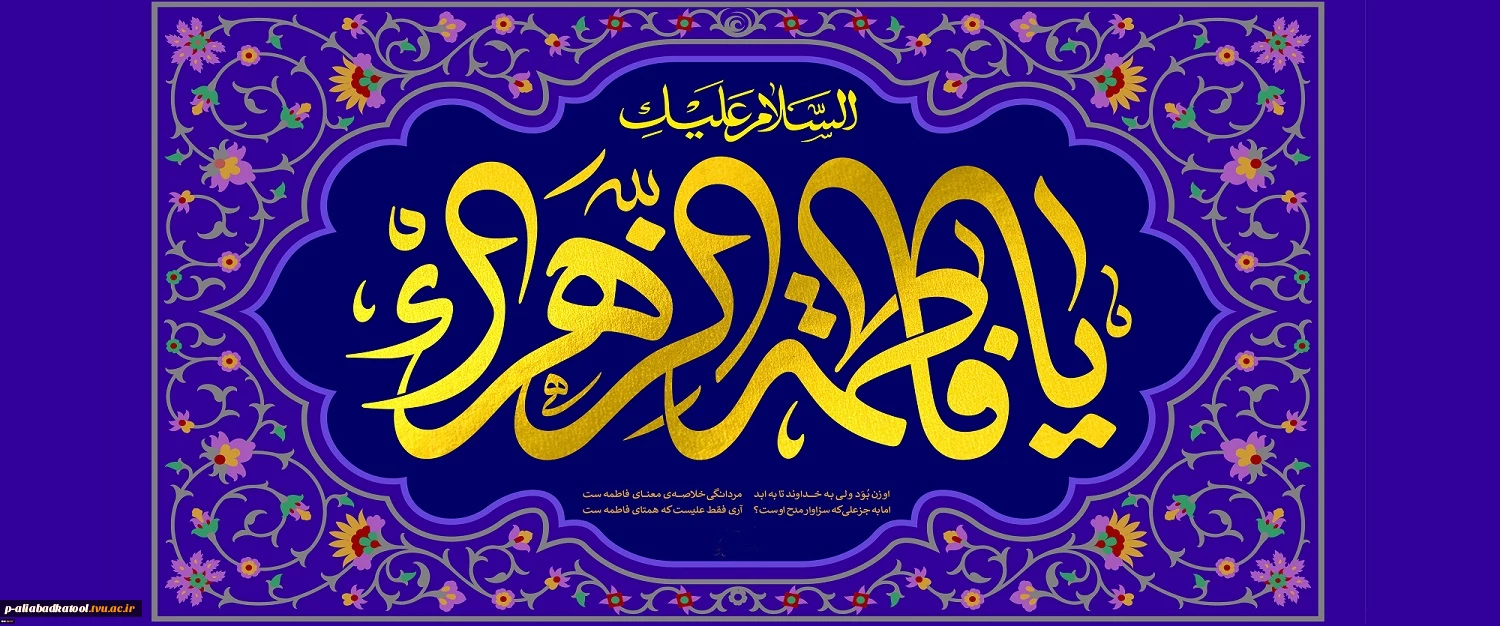 السَّلامُ عَلَيْكِ
يا فاطمة الزهراء
او زن بُوَد ولی به خداوند تا به ابد مردانگی خلاصه‌ی معنای فاطمه ست
اما به جز علی که سزاوار مدح اوست؟ آری فقط علیست که همتای فاطمه ست
p-aliabadkatool.tvu.ac.ir